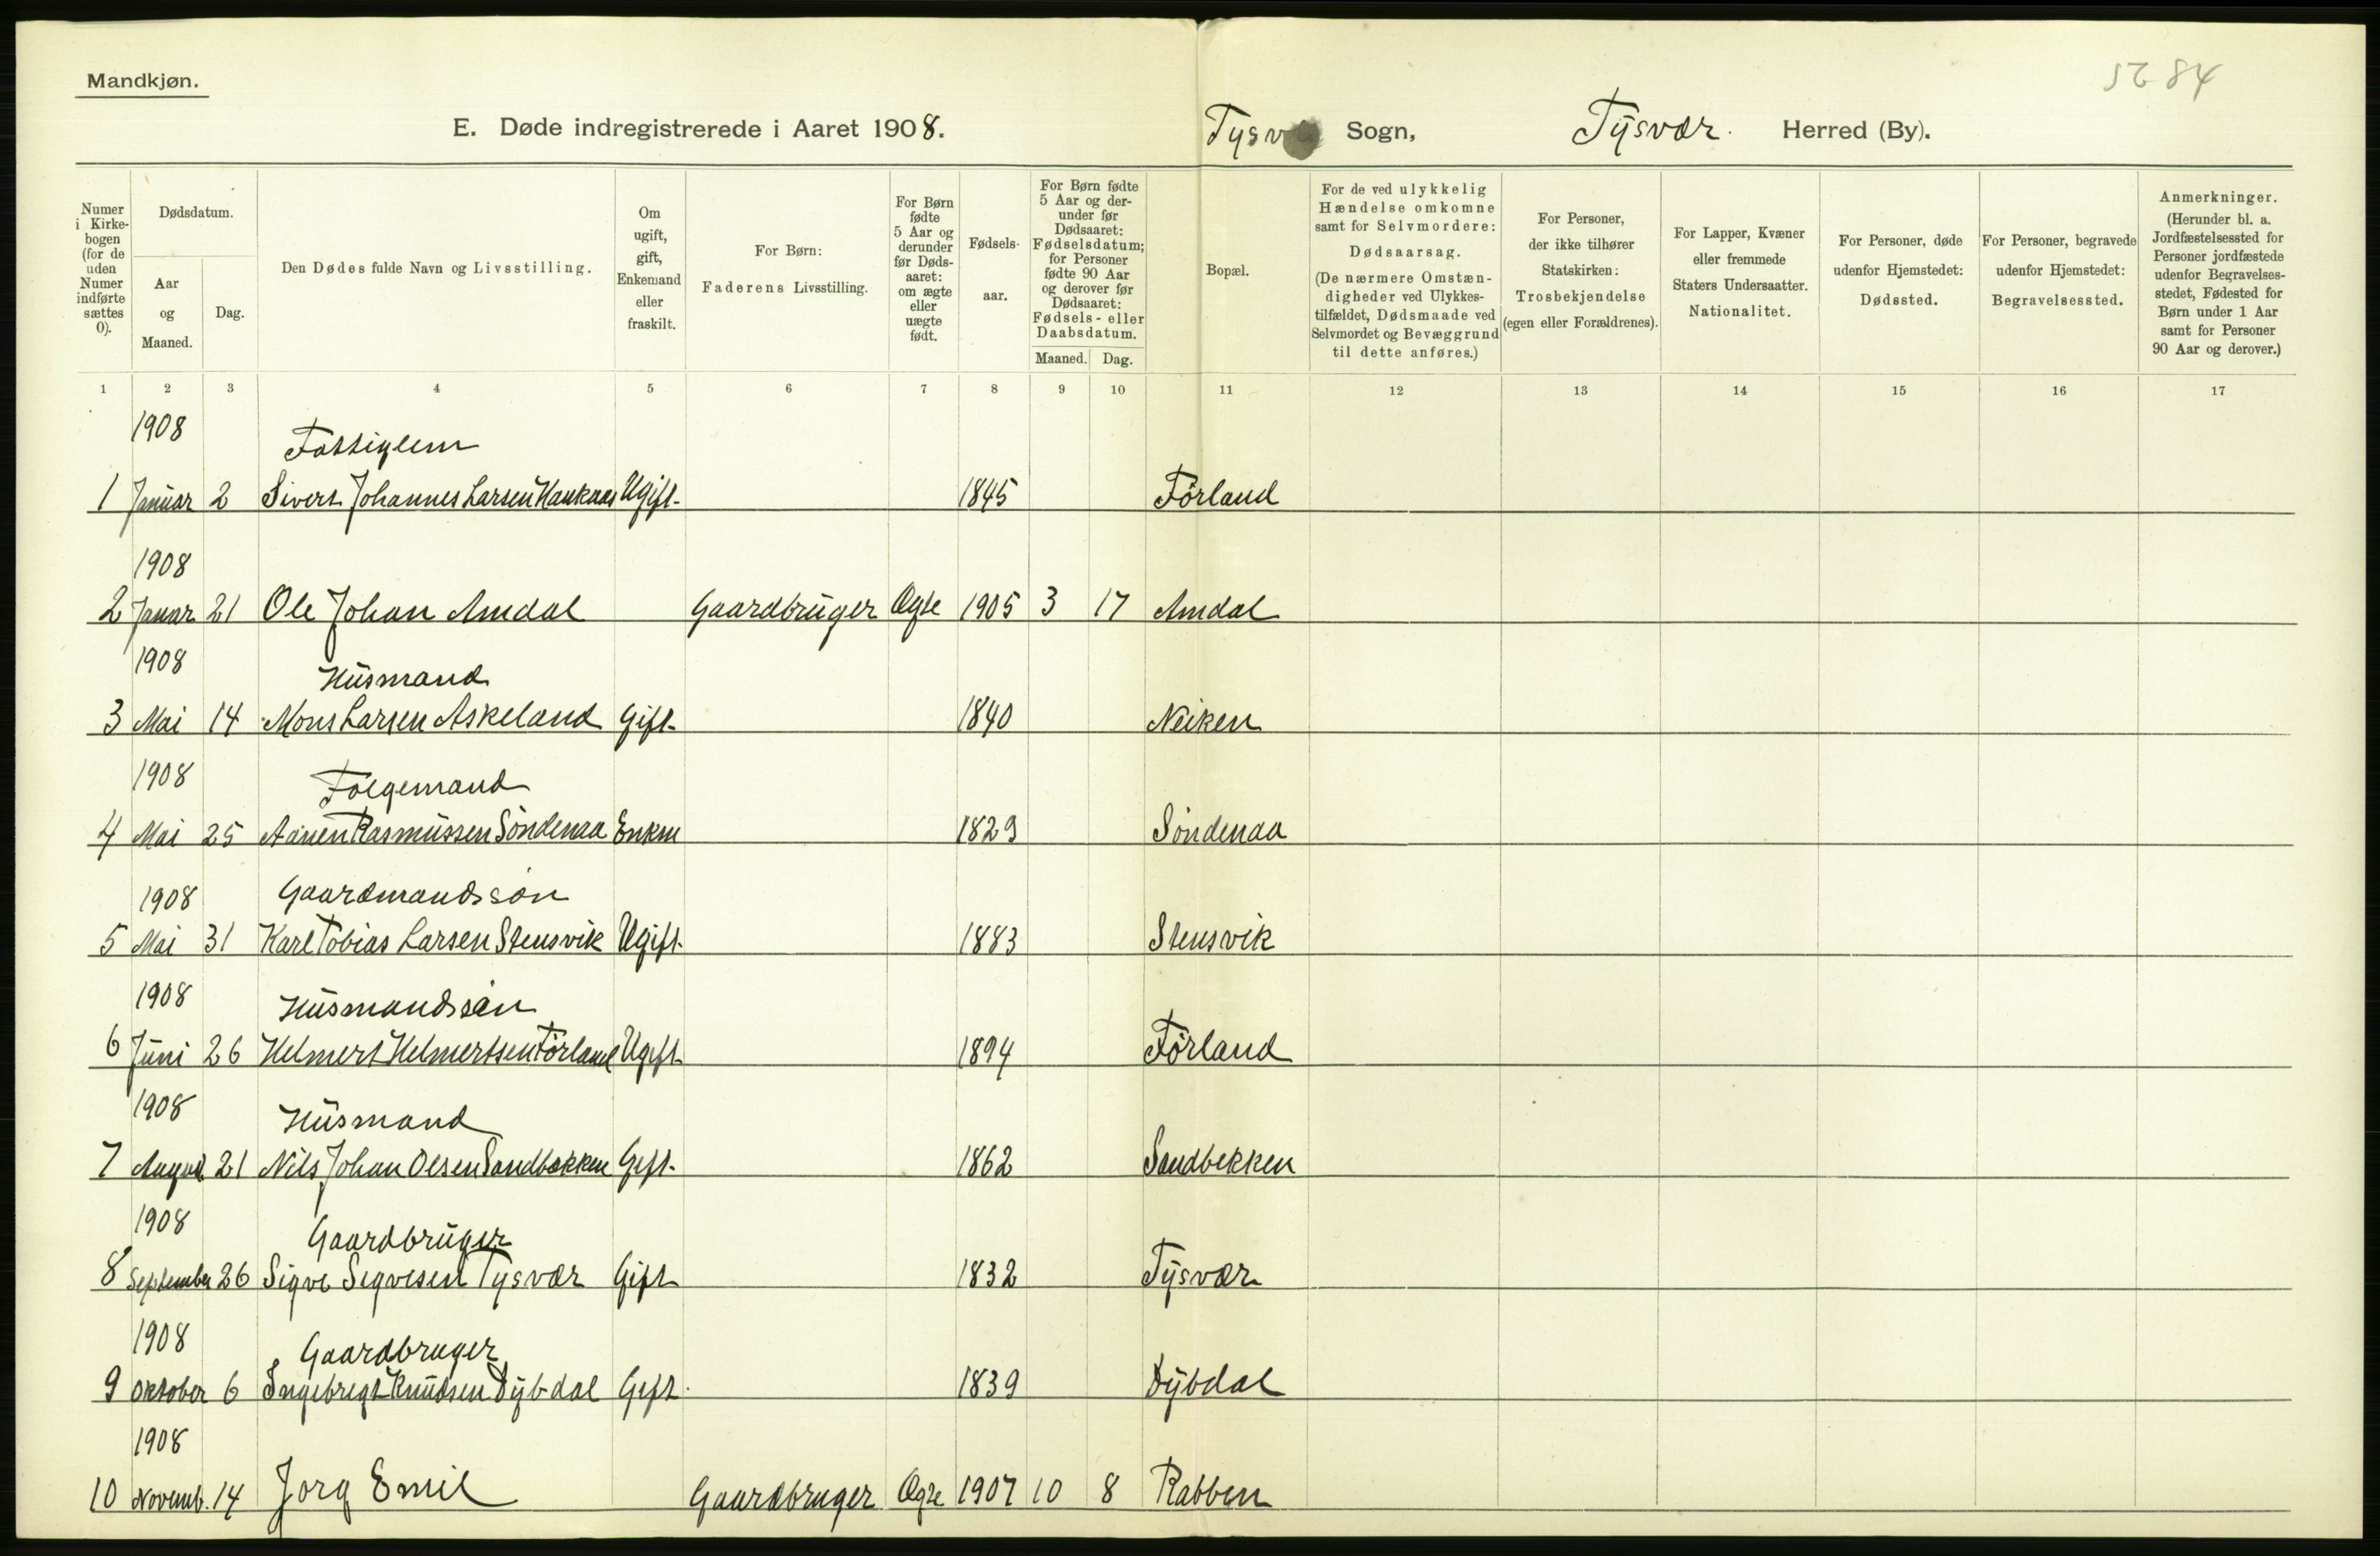 Mandkjøn.
5284
E. Døde indregistrerede i Aaret 1908. Sogn, Tysvær. Herred (By).
Numer i Kirke-bogen (for de uden Numer indførte sættes 0).
Dødsdatum.
Aar og Maaned.
Dag.
Den Dødes fulde Navn og Livsstilling.
Om ugift, gift, Enkemand eller fraskilt.
For Børn: Faderens Livsstilling.
For Børn fødte 5 Aar og derunder før Døds-aaret: om ægte eller uægte født.
Fødsels-aar.
For Børn fødte 5 Aar og der-under før Dødsaaret: Fødselsdatum; for Personer fødte 90 Aar og derover før Dødsaaret: Fødsels- eller Daabsdatum.
Maaned. Dag.
Bopæl.
For de ved ulykkelig Hændelse omkomne samt for Selvmordere: Dødsaarsag. (De nærmere Omstæn-digheder ved Ulykkes-tilfældet, Dødsmaade ved Selvmordet og Bevæggrund til dette anføres.)
For Personer, der ikke tilhører Statskirken: Trosbekjendelse (egen eller Forældrenes).
For Lapper, Kvæner eller fremmede Staters Undersaatter. Nationalitet.
For Personer, døde udenfor Hjemstedet: Dødssted.
For Personer, begravede udenfor Hjemstedet: Begravelsessted.
Anmerkninger. (Herunder bl. a. Jordfæstelsessted for Personer jordfæstede udenfor Begravelses-stedet, Fødested for Børn under 1 Aar samt for Personer 90 Aar og derover.)
1 2 3 4 5 6 7 8 9 10 11 12 13 14 15 16 17
1908 Fattiglem
1 Januar 2 Sivert Johannes Larsen Haukaas Ugift. 1845 Förland
1908
2 Januar 21 Ole Johan Amdal Gaardbruger Ægte 1905 3 17 Amdal
1908 Husmand
3 Mai 14 Mons Larsen Askeland Gift. 1840 Neiken
1908 Folgemand
4 Mai 25 Aanen Rasmussen Söndenaa Enkm 1829 Söndenaa
1908 Gaardmandssön
5 Mai 31 Karl Tobias Larsen Stensvik Ugift. 1883 Stensvik
1908 Husmandssön
6 Juni 26 Helmert Helmertsen Förland Ugift. 1894 Förland
1908 Husmand
7 August 21 Nils Johan Olsen Sandbekken Gift. 1862 Sandbekken
1908 Gaardbruger
8 September 26 Sigve Sigvesen Tysvær Gift 1832 Tysvær
1908 Gaardbruger
9 Oktober 6 Ingebregt Knudsen Dybdal Gift. 1839 Dybdal
1908
10 Novemb. 14 Jorg Emil Gaardbruger Ægte 1907 10 8 Rabben